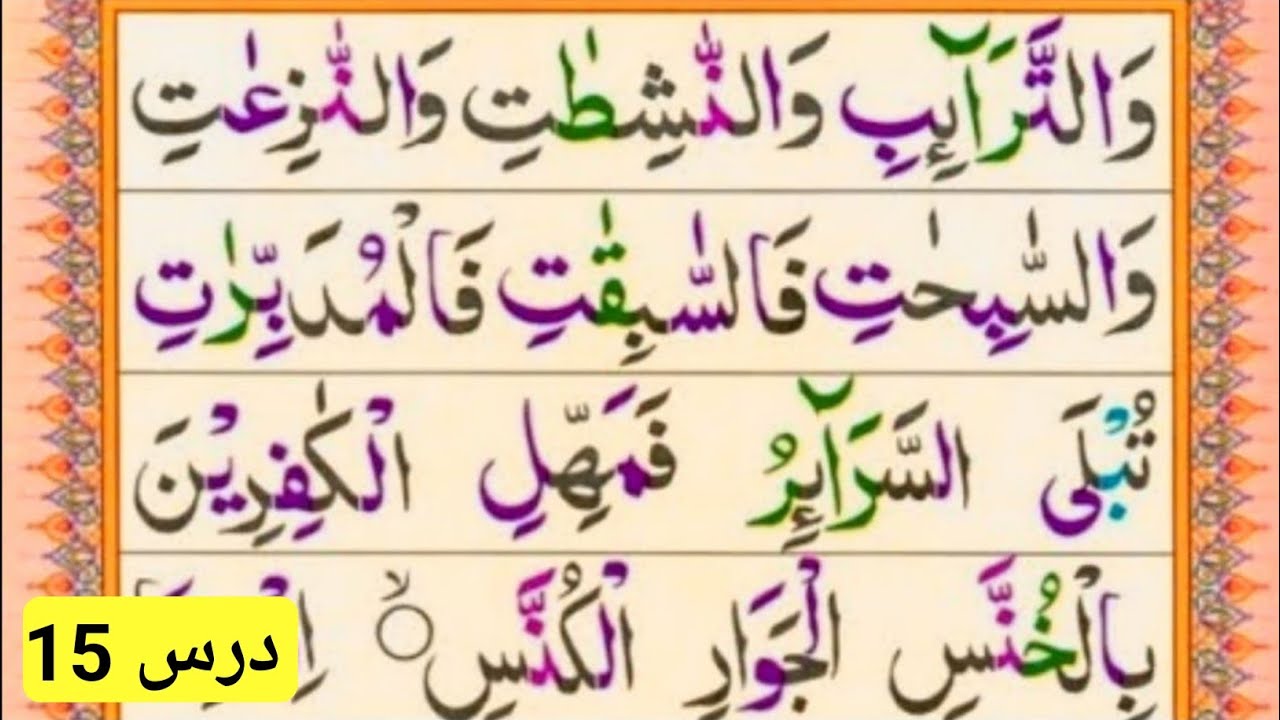 وَالتَّرَآئِبِ وَالنّٰشِطٰتِ وَالنّٰزِعٰتِ
وَالسّٰبِحٰتِ فَالسّٰبِقٰتِ فَالْمُدَبِّرٰتِ
تُبْلَى السَّرَآئِرُ فَمَهِّلِ الْكٰفِرِيْنَ
بِالْخُنَّسِ الْجَوَارِ الْكُنَّسِ ۙ
درس 15